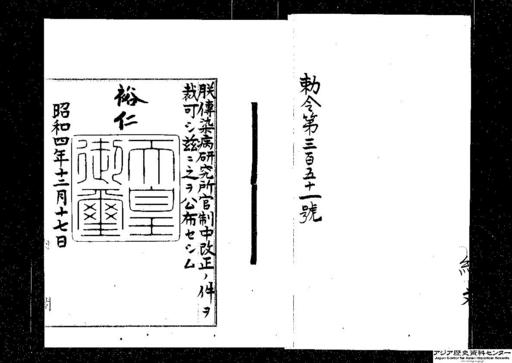 勅令第三百五十一號
朕傳染病研究所官制中改正ノ件ヲ
裁可シ茲ニ之ヲ公布セシム
裕仁
天皇
御璽
昭和四年十二月十七日
アジア歴史資料センター
Japan Center for Asian Historical Records